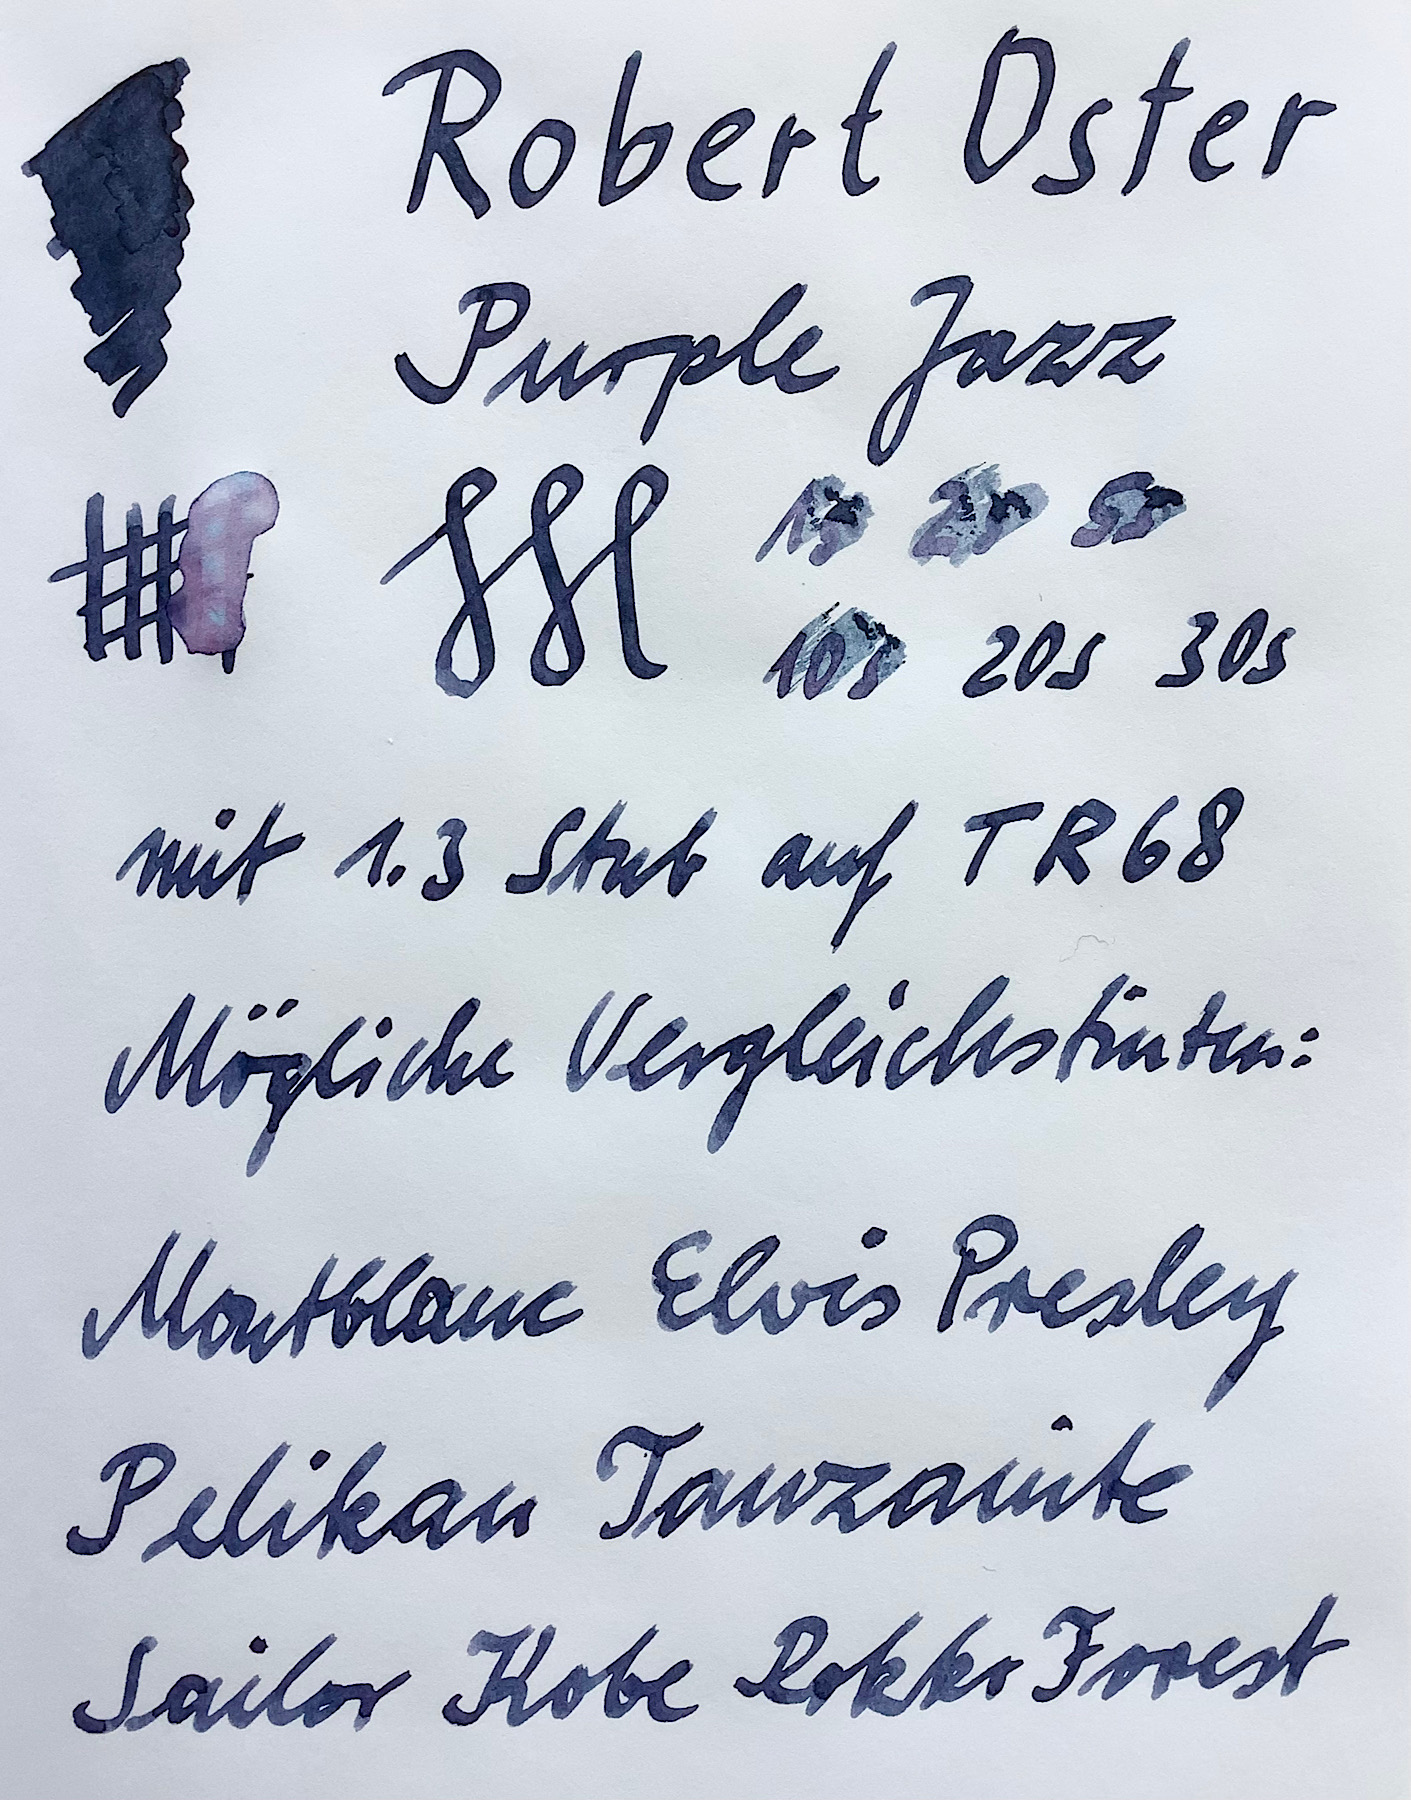 Robert Oster
Purple Jazz
1s 2s 5s
10s 20s 30s
mit 1.3 Stub auf TR68
Mögliche Vergleichstinten:
Montblanc Elvis Presley
Pelikan Tanzanite
Sailor Kobe Rokko Forest